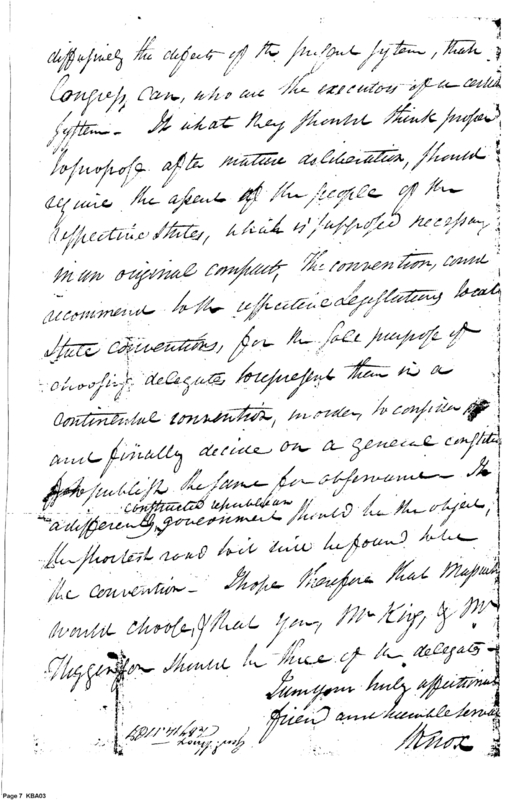 diffusively the defects of the present system, than
Congress, can, who are the executors of a certain
system - If what they should think proper
to propose after mature deliberation, should
require the assent of the people of the
respective states, which is supposed necessary
in an original compact, The convention, could
recommend to the respective Legislatures local
state conventions, for the sole purpose of
choosing delegates to represent them in a
continental convention, in order, to consider
and finally decide on a general constitu
to publish the same for observance - If
constructed republican
a differently government should be the object,
the shortest road to it will be found to be
the convention - I hope therefore that Massachu
would choose, & that you, Mr King, & Mr
Higginson should be three of the delegates -
I am your truly affectionat
friend and humble servan
HKnox
Genl. Knox
Page 7 KBA03